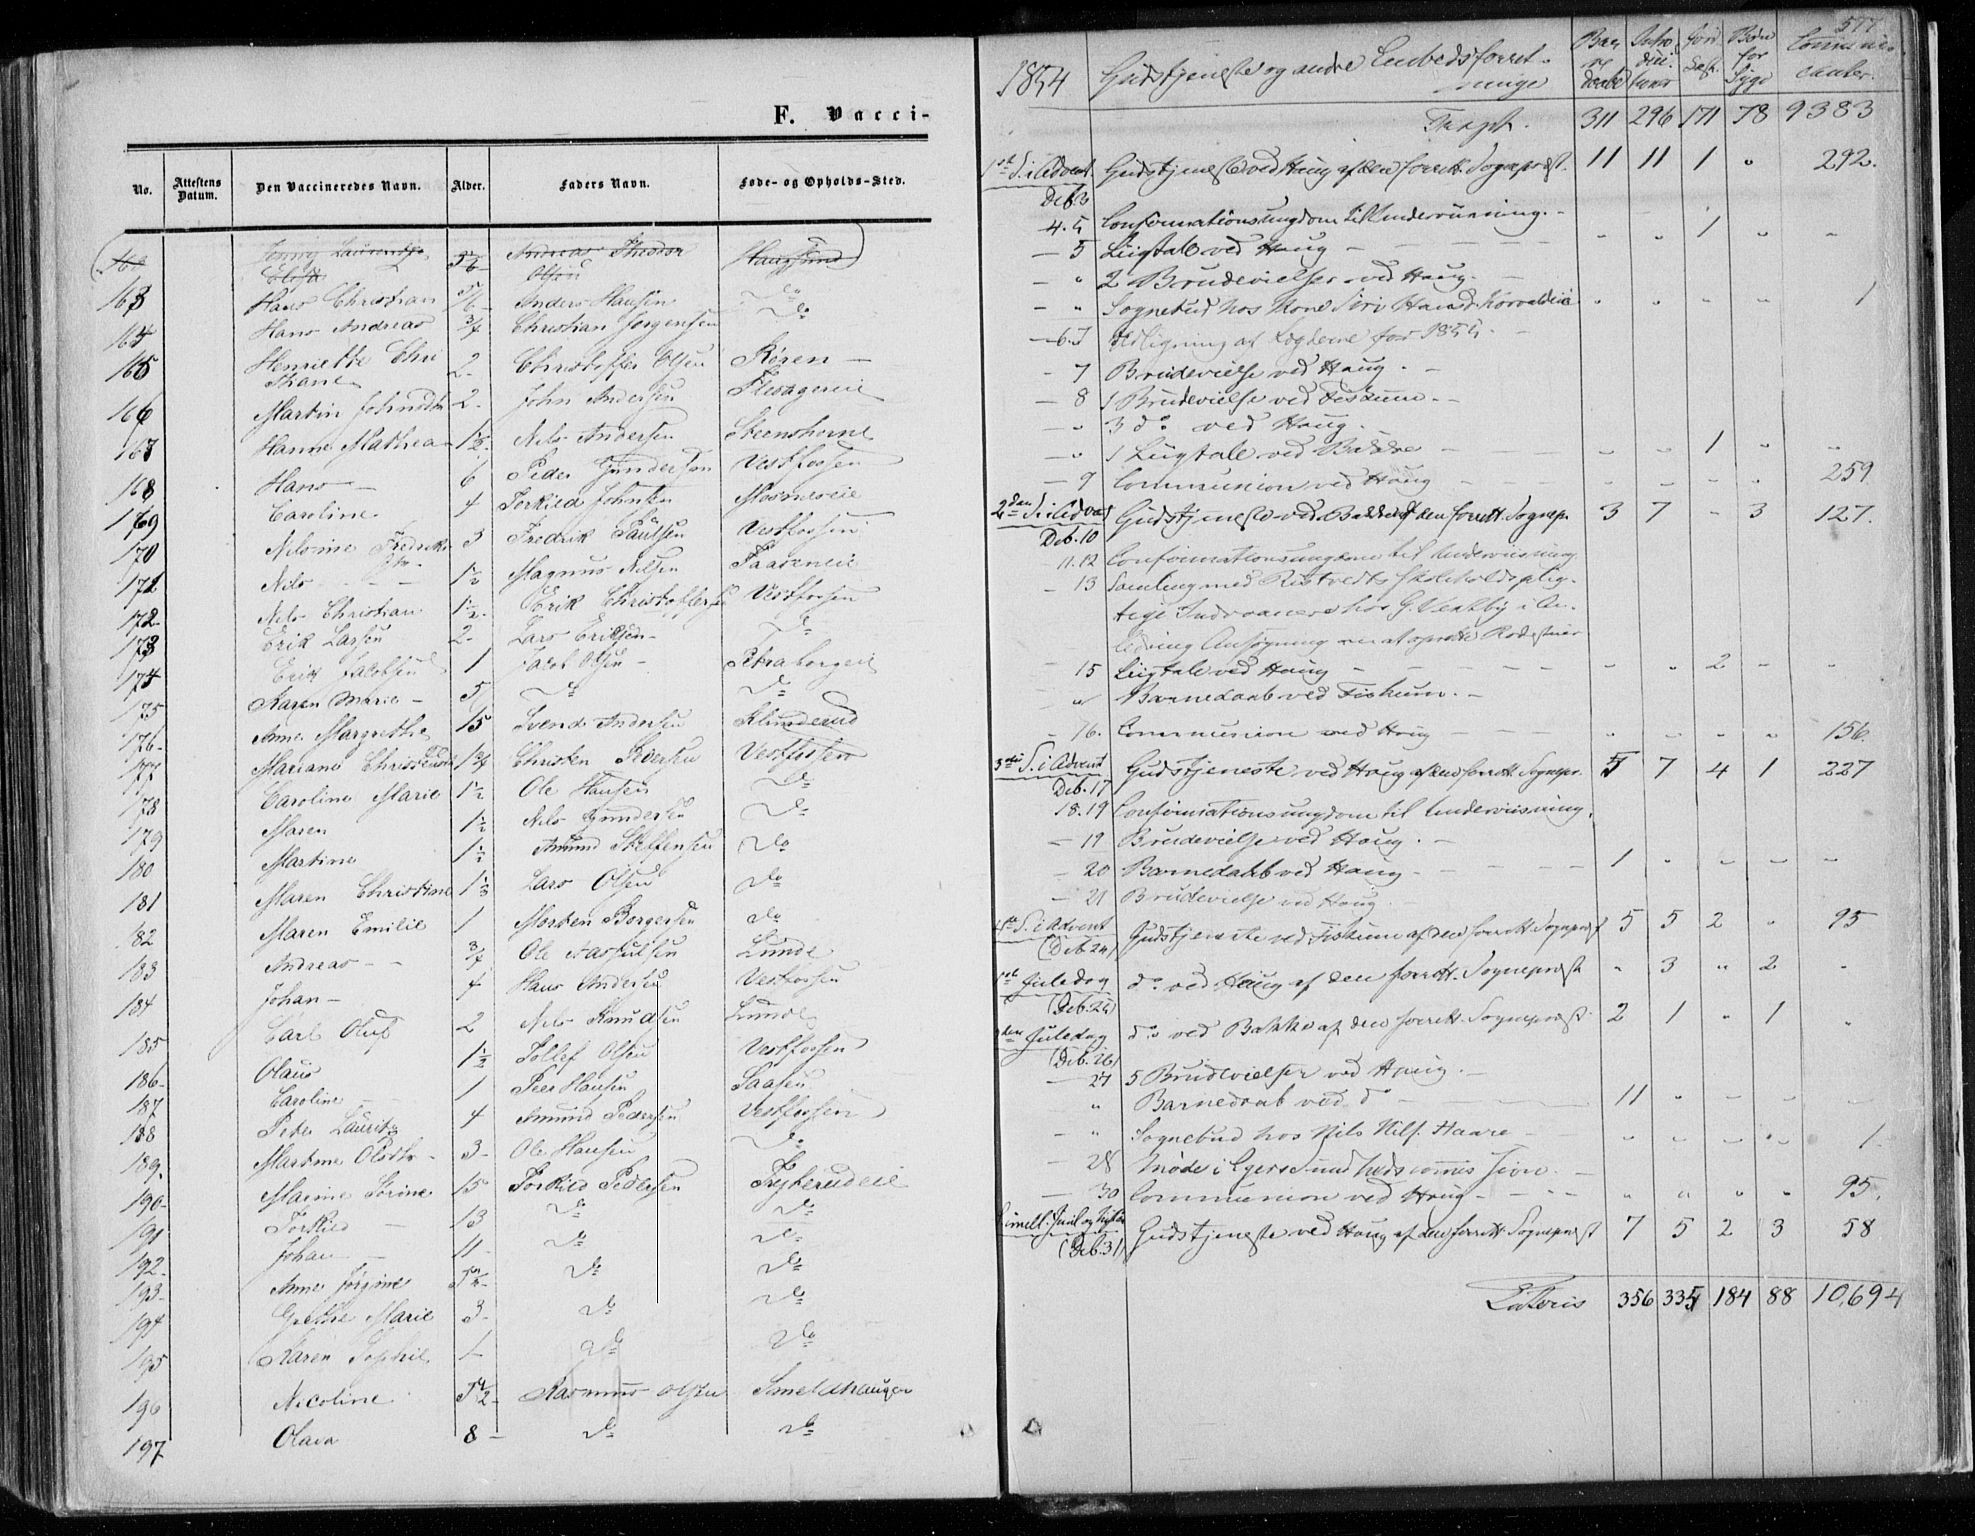 F. Vacci-
No. Attestens Datum. Den Vaccineredes Navn. Alder. Faders Navn. Føde- og Opholds-Sted.
Jenny Andreas Theodor
Elise Olsen Haugsund
163 Hans Christian Anders Hansen do
164 Hans Andreas 3/4 Christian Jørgensen do
165 Henriette Chri 2- Christoffer Olsen Røren -
stiane
166 Martin Johnsen 2- John Andersen Flesageneie
167 Hanne Mathea Nils Andersen Steenshorne
168 Hans - 6 Peder Gundersen Vestfossen
169 Caroline 4 Torkild Johnsen
170 Nilsine Fredriks 3 Fredrik Paulsen Vestfossen
171 Nils 1½ Magnus Nilsen
172- Nils Christian 1½- Erik Christoffersen Vestfossen
173 Erik Larsen 2- Lars Eriksen- do
174 Erik Jacobsen 1 Jacob Olsen -
175 Karen Marie - 5 do do
176- Anne Margrethe 15 Svend Andersen Klunderud
177 Mariane 1¾ Christen Pedersen Vestfossen
178 Caroline Marie 1½ Ole Hansen do
179 Maren 1½ Nils Gundersen do
180 Martine 1½ Amund Steffensen do
181 Maren Christine 1⅓ Lars Olsen do
82 Maren Emilie 1 Morten Borgersen do
183 Andreas - - 3/4 Ole Lunde
184 Johan - 4 Hans Andersen Vestfossen
185 Carl Oluf 2 Nils Knudsen Lunde
186- Olaus 1½ Tollef Olsen Vestfossen
187 Caroline - 1 Peer Hansen
188 Peter Lauritz 4 Amund Pedersen Vestfossen
189. Martine 3- Ole Hansen do
190- Maxine Sorine 15 Torkild Pedersen
191 Torkild - 13 do do
192- Johan - 11- do do
193- Anne Jørgine do do
194 Grethe Marie 3- do do
195 Karen Sophie 1 do do
196 Nicoline Rasmus Olsen Smeldhaugen
197 Olava 8- do do
577
1854 Gudstjeneste og andre Embedsforret- ninger
Bar ne daab Intro duc tioner Jord Fæst. Bøn for Syge Communi- canter.
Transp. 311 296 171 78 9383
1st S. i Advent. Gudstjeneste ved Haug af den forrett. Sognepræst. 11 11 1 " 292.
Deb. 3
4. 5 Confirmationsungdom til Underviisning. -
- 5 Liigtale ved Haug - " " 1 " "
- " 2 Brudevielser ved Haug. -
- " Sognebud hos Kone Siri Hansd. " " " " 1
- 6.7 Udligning af Lægderne for 1855. -
- 7 Brudevielse ved Haug. -
- 8 1 Brudevielse ved Fiskum. -
- " 3 do ved Haug.
- " 1 Liigtale ved Bakke - " " 1 " "
- 9 Communion ved Haug - " " " " 259
2den S. i Advent Gudstjeneste ved Bakke af den forrett. Sognep. 3 7 - 3 127.
Deb. 10
11.12 Confirmationsungdom til Underviisning
- 13 Samling med Rustvedts Skoleholdsplig-
tige Indvaanere hos G. Vestby i An-
ledning Ansøgning om at oprette
- 15 Liigtale ved Haug - " " 2 " "
" Barnedaab ved Fiskum. -
- 16. Communion ved Haug - " " " " 156.
3die S. i Advent Gudstjeneste ved Haug af den forrett. Sognepr. 5 7 4 1 227
Deb. 17
18.19 Confirmationsungdom til Underviisning.
- 19 Brudevielse ved Haug. -
- 20 Barnedaab ved Haug - 1 " " " "
- 21 Brudevielse ved Haug.
4de S. i Advent Gudstjeneste ved Fiskum af den forrett. Sognepræst 5 5 2 " 95
(Deb. 24)
1st Juledag do ved Haug af den forrett. Sognepræst " 3 " 2 "
(Deb. 25)
2den Juledag do ved Bakke af den forrett. Sognepræst 2 1 " 1 "
(Deb. 26)
- 27 5 Brudevielser ved Haug. -
" Barnedaab ved do - 11 " " " "
- " Sognebud hos Nils Nils. Haare " " " " 1
- 28 Møde i Egers Sundhedscommission. -
- 30 Communion ved Haug - " " " " 95.
imell. Juul og Nytaar Gudstjeneste ved Haug af den forrett. Sognepræst 7 5 2 3 58
(Deb. 31)
Lateris 356 335 184 88 10,694